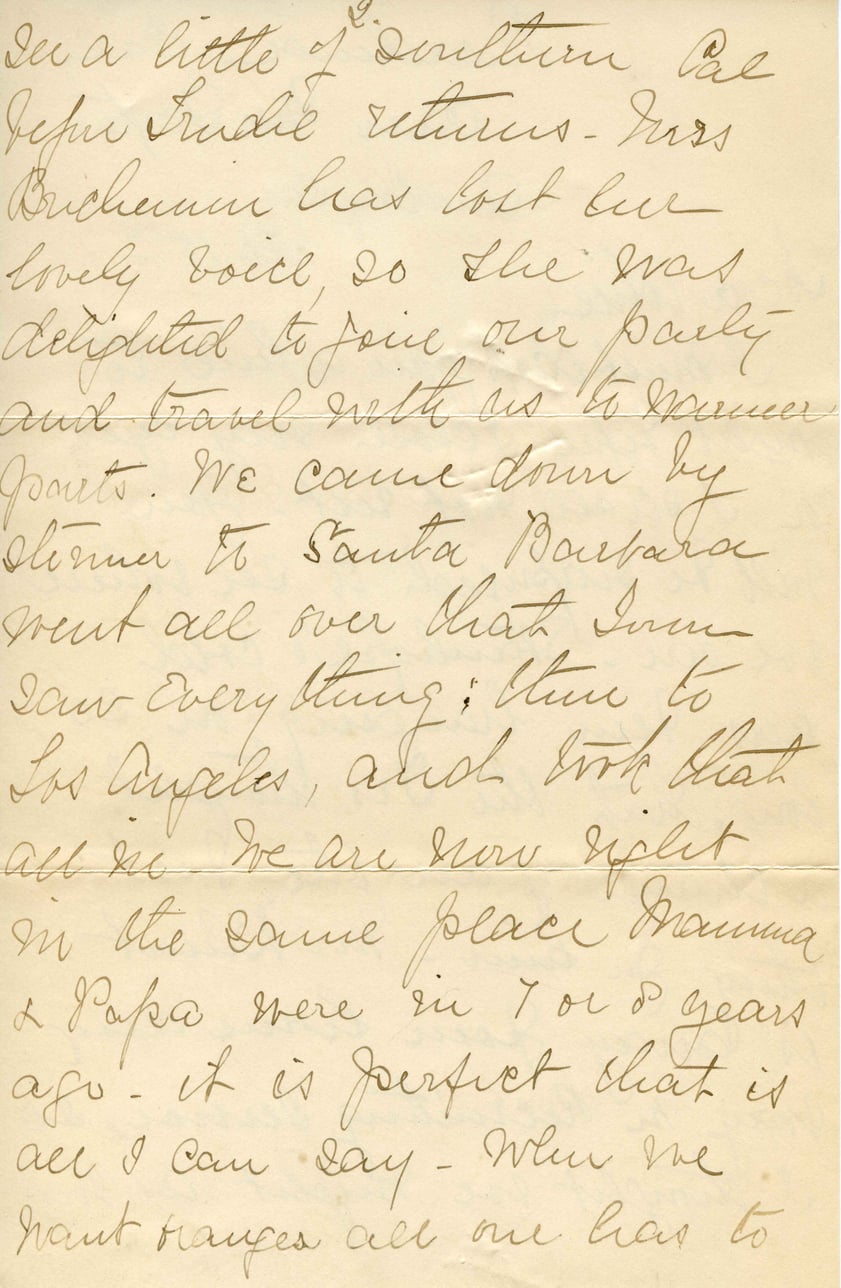 2.
see a little of Southern Cal
before Trudie returns - Mrs
has lost her
lovely voice, so she was
delighted to join our party
and travel with us to warmer
parts. We came down by
stemer to Santa Barbara
went all over that Town
saw everything; then to
Los Angeles, and took that
all in - We are now right
in the same place Mamma
& Papa were in 7 or 8 years
ago - it is perfect that is
all I can say - When we
want oranges all one has to